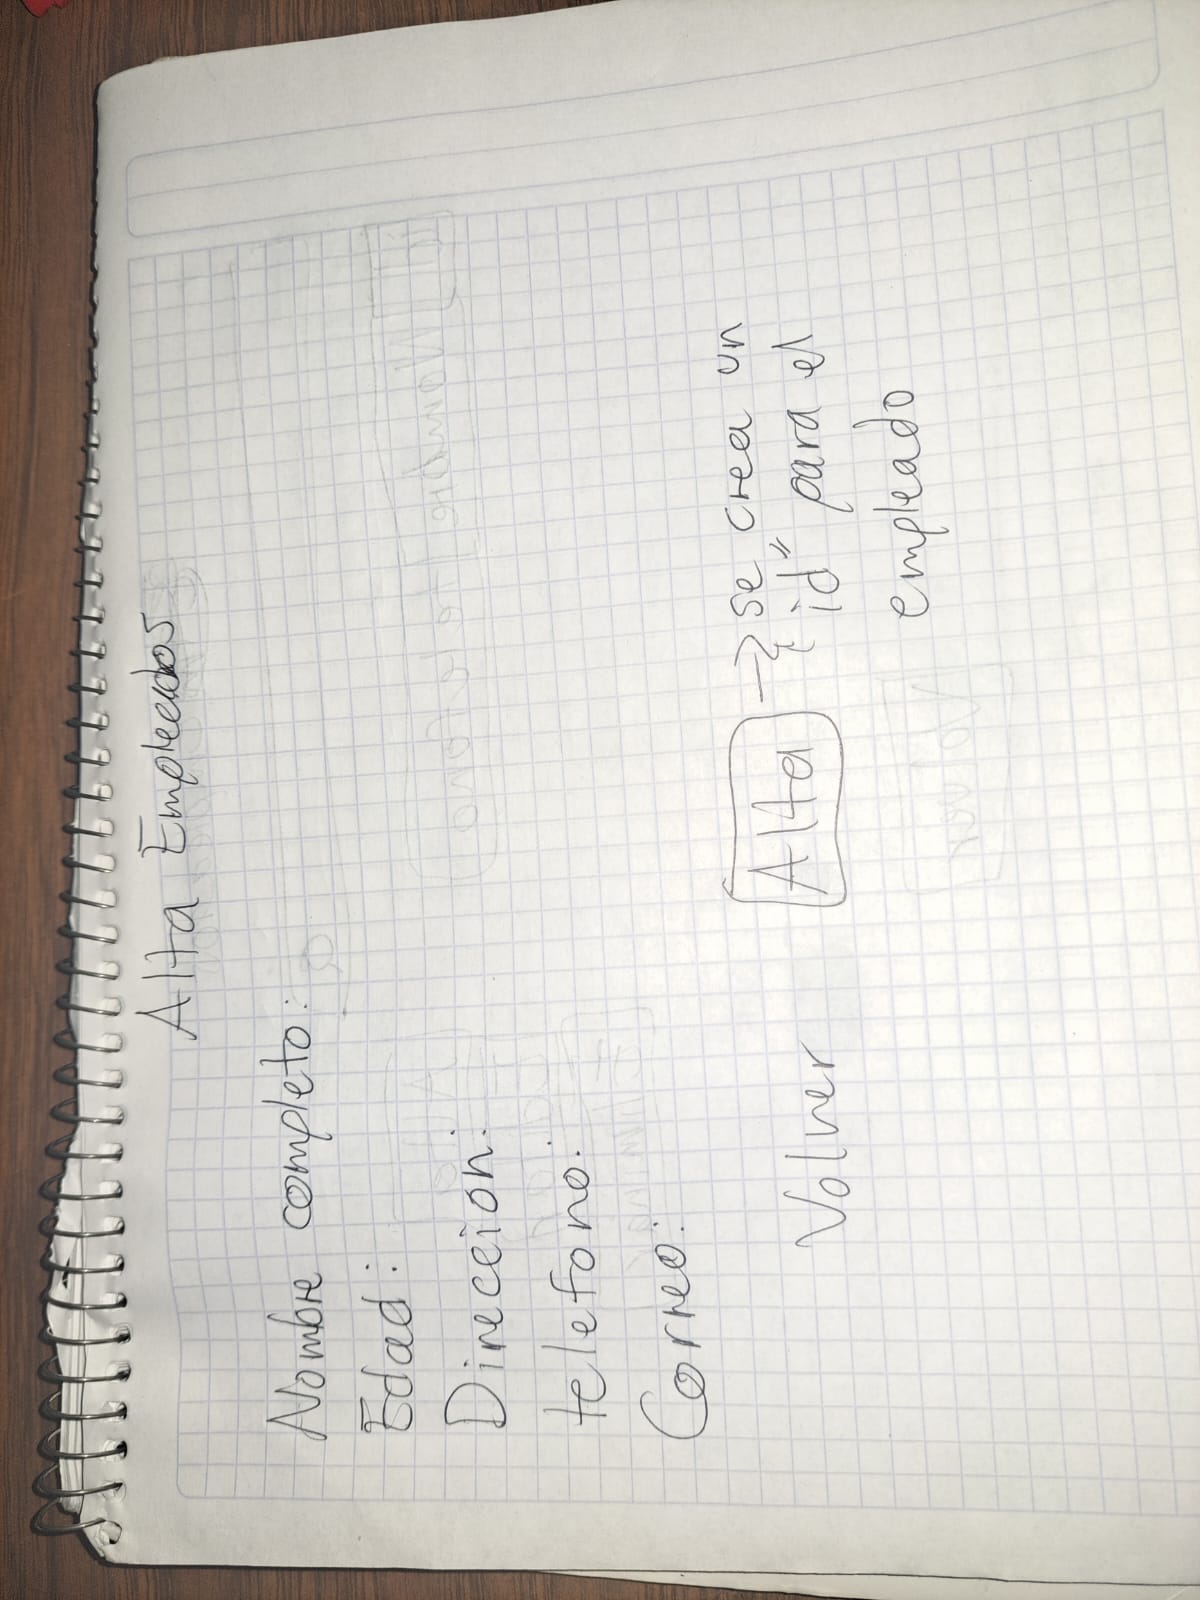 Alta Empleados
Nombre completo:
Edad:
Direccion:
telefono:
Correo:
Volver
Alta → se crea un
"id" para el
empleado